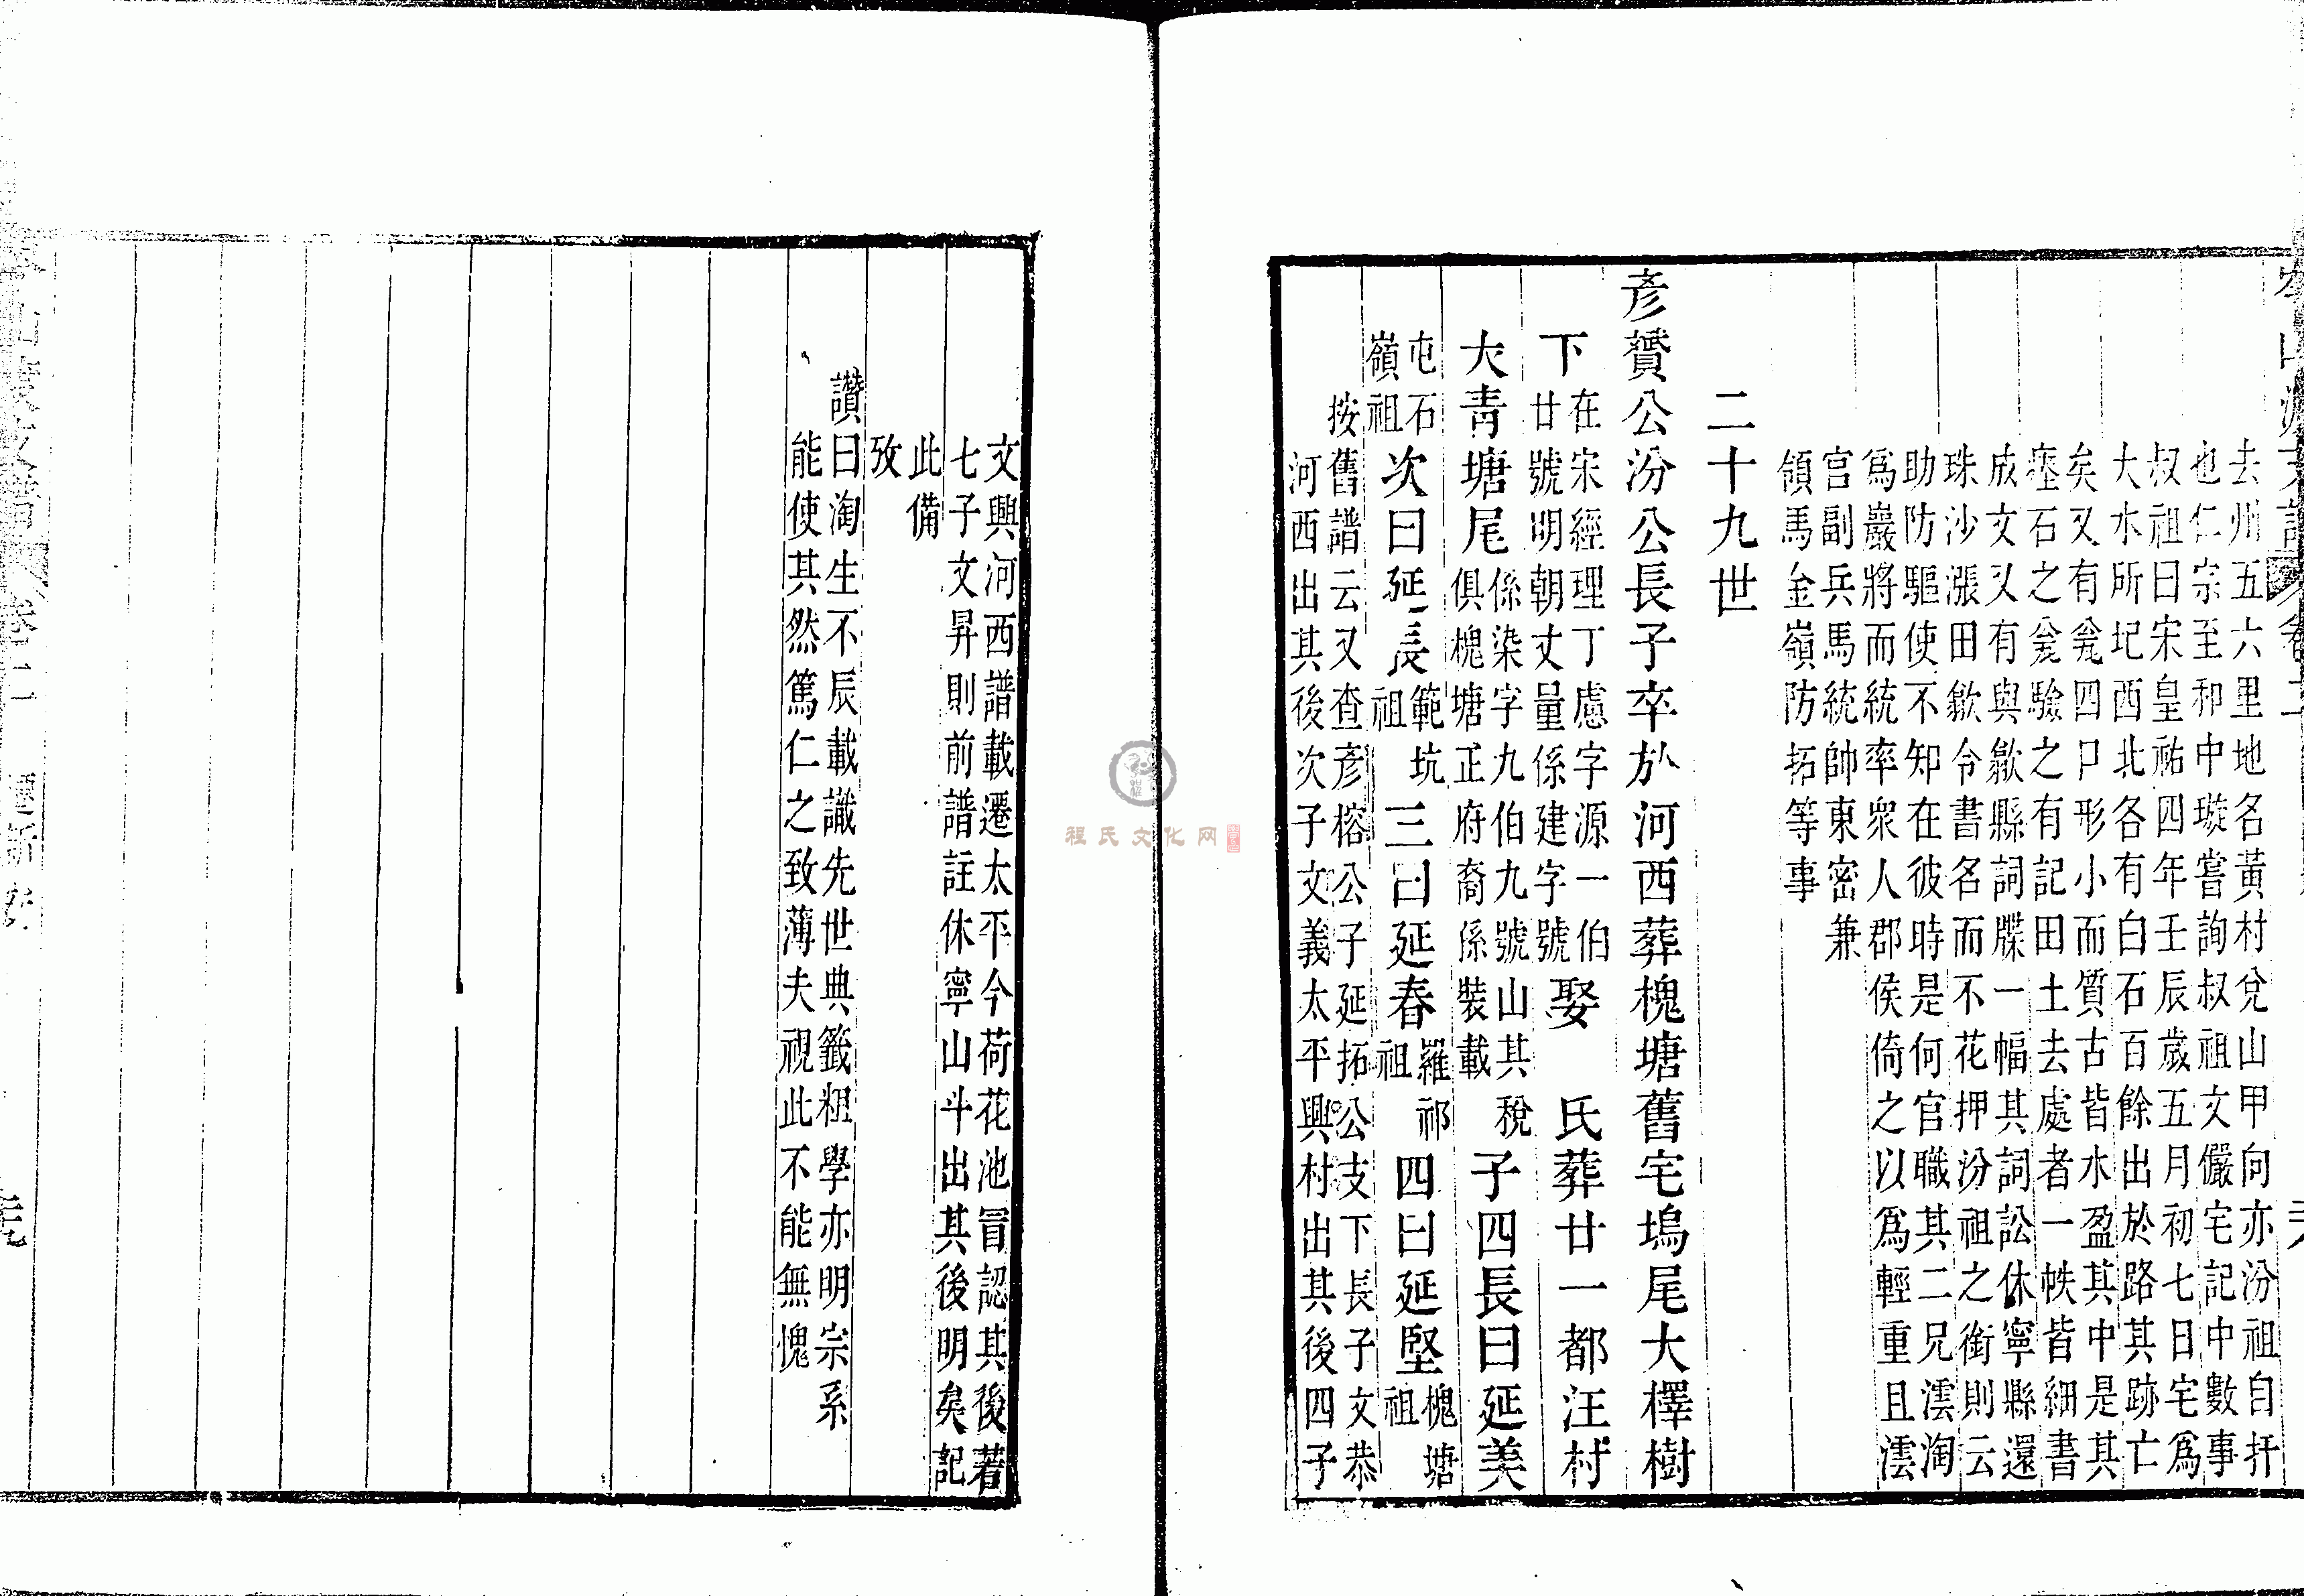 去州五六里地名黃村兌山甲向亦汾祖自扦
也仁宗至和中璇嘗詢叔祖文儼宅記中數事
叔祖曰宋皇祐四年壬辰歲五月初七日宅爲
大水所圮西北各有白石百餘出於路其跡亡
矣又有瓮四口形小而質古皆水盈其中是其
瘞石之瓮驗之有記田土去處者一帙皆細書
成文又有與歙縣詞牒一幅其詞訟休寧縣還
珠沙漲田歙令書名而不花押汾祖之銜則云
助防驅使不知在彼時是何官職其二兄澐淘
爲巖將而統率衆人郡侯倚之以爲輕重且澐
官副兵馬統帥東密兼
領馬金嶺防拓等事
二十九世
彥贇公汾公長子卒於河西葬槐塘舊宅塢尾大檡樹
下
在宋經理丁慮字源一伯
廿號明朝丈量係建字號
娶 氏葬廿一都汪村
大青塘尾
係染字九伯九號山其稅
俱槐塘正府裔係裝載
子四長曰延美
屯石
嶺祖
次曰延長
範坑
祖
三曰延春
羅祁
祖
四曰延堅
槐塘
祖
按舊譜云又查彥榕公子延拓公支下長子文恭
河西出其後次子文義太平興村出其後四子
文興河西譜載遷太平今荷花池冒認其後著
七子文昇則前譜註休寧山斗出其後明矣記
此備
攷
讚曰淘生不辰載識先世典籤粗學亦明宗系
能使其然篤仁之致薄夫視此不能無愧
程氏文化网
卷二
遷新安